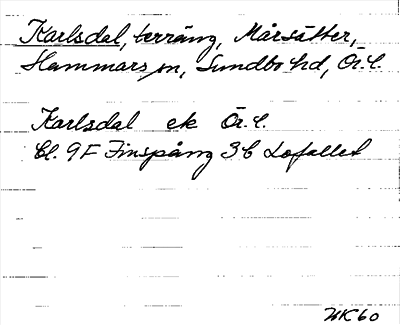 Karlsdal, terräng, Mårsätter,
Hammars sn, Sundbo hd, Ör.l.
Karlsdal ek Ör.l.
Bl. 9F Finspång 3b Lofallet
HK60